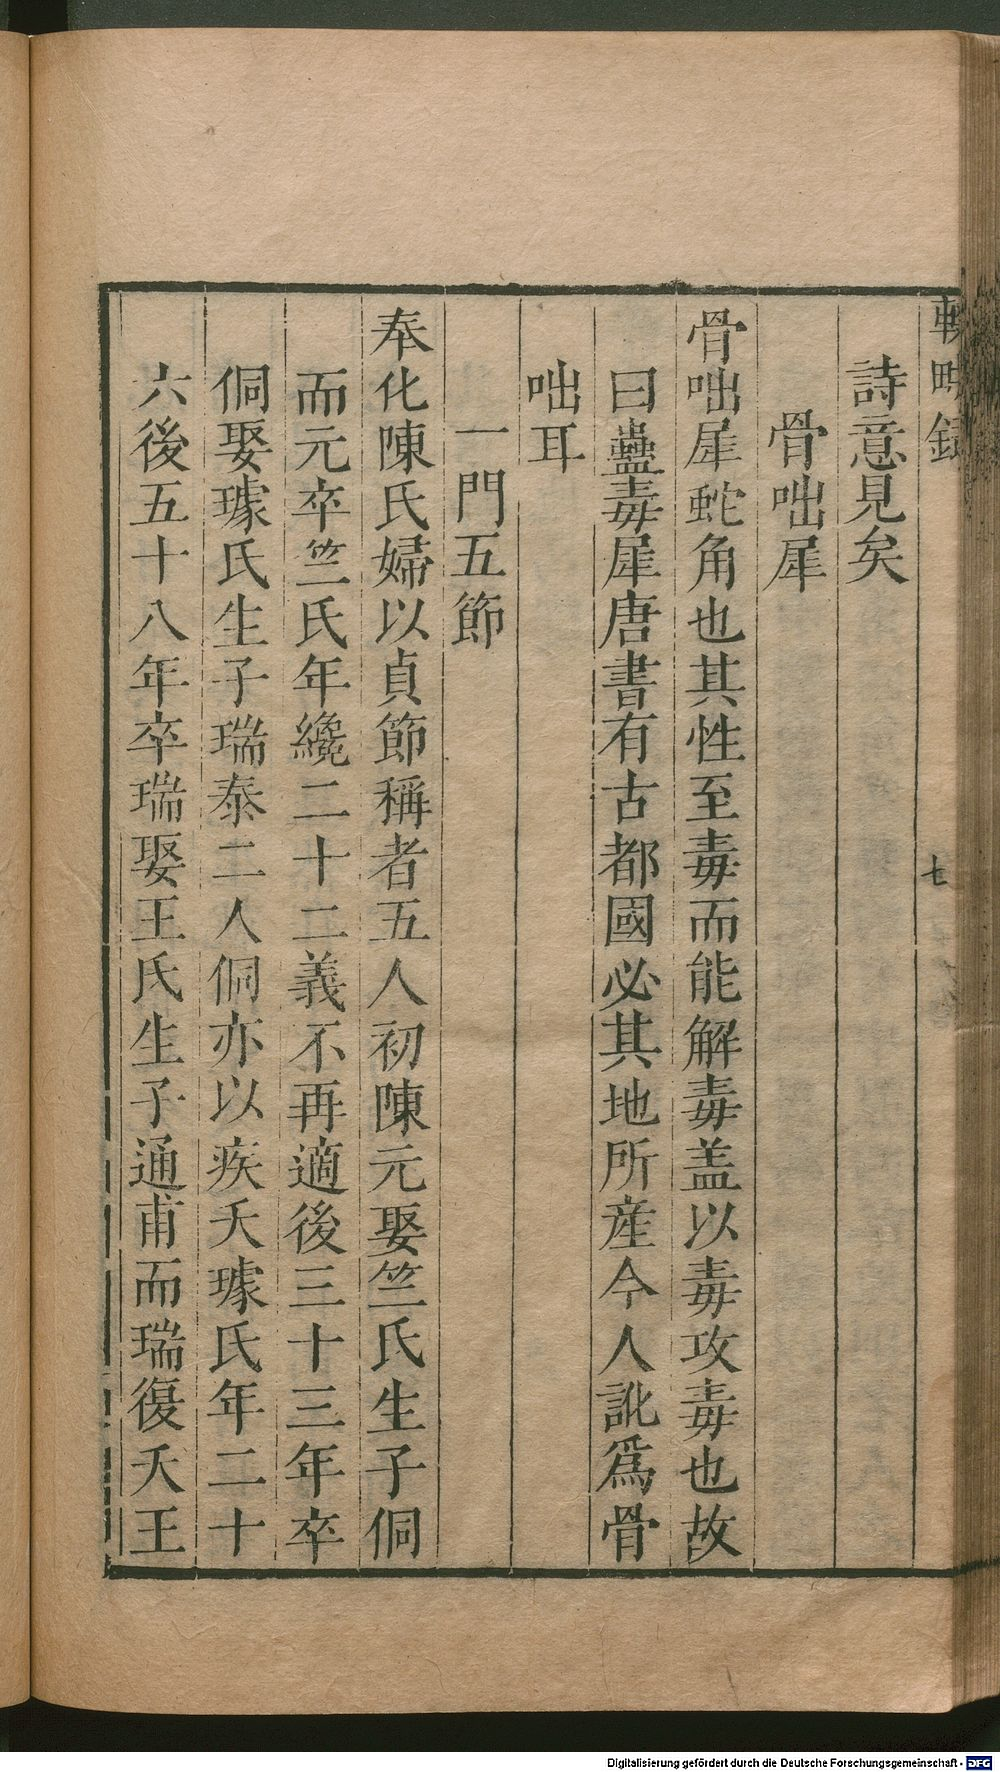 輟畊録
七
詩意見矣
骨咄犀
骨咄犀蛇角也其性至毒而能解毒盖以毒攻毒也故
曰蠱毒犀唐書有古都國必其地所産今人訛爲骨
咄耳
一門五節
奉化陳氏婦以貞節稱者五人初陳元娶竺氏生子侗
而元卒竺氏年纔二十二義不再適後三十三年卒
侗娶璩氏生子瑞泰二人侗亦以疾夭璩氏年二十
六後五十八年卒瑞娶王氏生子通甫而瑞復夭王
Digitalisierung gefördert durch die Deutsche Forschungsgemeinschaft - DFG